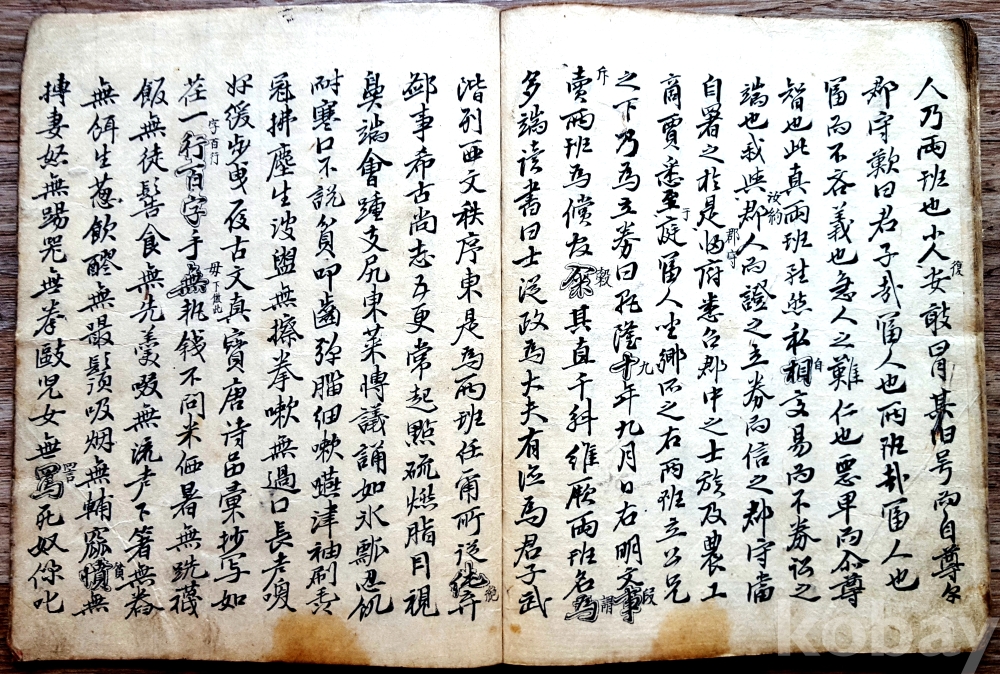 人乃兩班也小人復安敢冒其旧号而自尊尔
郡守歎曰君子哉富人也兩班哉富人也
富而不吝義也急人之難仁也惡卑而尊
智也此真兩班雖然私自相交易而不券訟之
端也我與汝約郡人而證之立券而信之郡守當
自署之於是郡守歸府悉召郡中之士族及農工
商賈悉至于庭富人坐鄉所之右兩班立公兄
之下乃為立券曰乾隆十九年九月日右明文事段
斥賣兩班為償穀其直千斛維厥兩班名為謂
多端读書曰士從政為大夫有德為君子武
階列西文秩序東是為兩班任爾所從絶棄
鄙事希古尚志五更常起點硫燃脂目視
鼻端會踵支尻東萊博議誦如氷瓢忍飢
耐寒口不說貧叩齒弹腦细嗽嚥津袖刷毳
冠拂塵生波盥無擦拳嗽無過口長声喚
婢緩步曳履古文真寶唐诗品彙抄写如
荏一行百字字百行手無毋下倣此執钱不問米価暑無跣襪
飯無徒髻食無先羹歠無流声下箸無舂
無餌生葱飲醪無嘬鬚吸烟無輔窳憤無
摶妻怒無踢器無拳敺児女無罵詈死奴仆叱
kobay